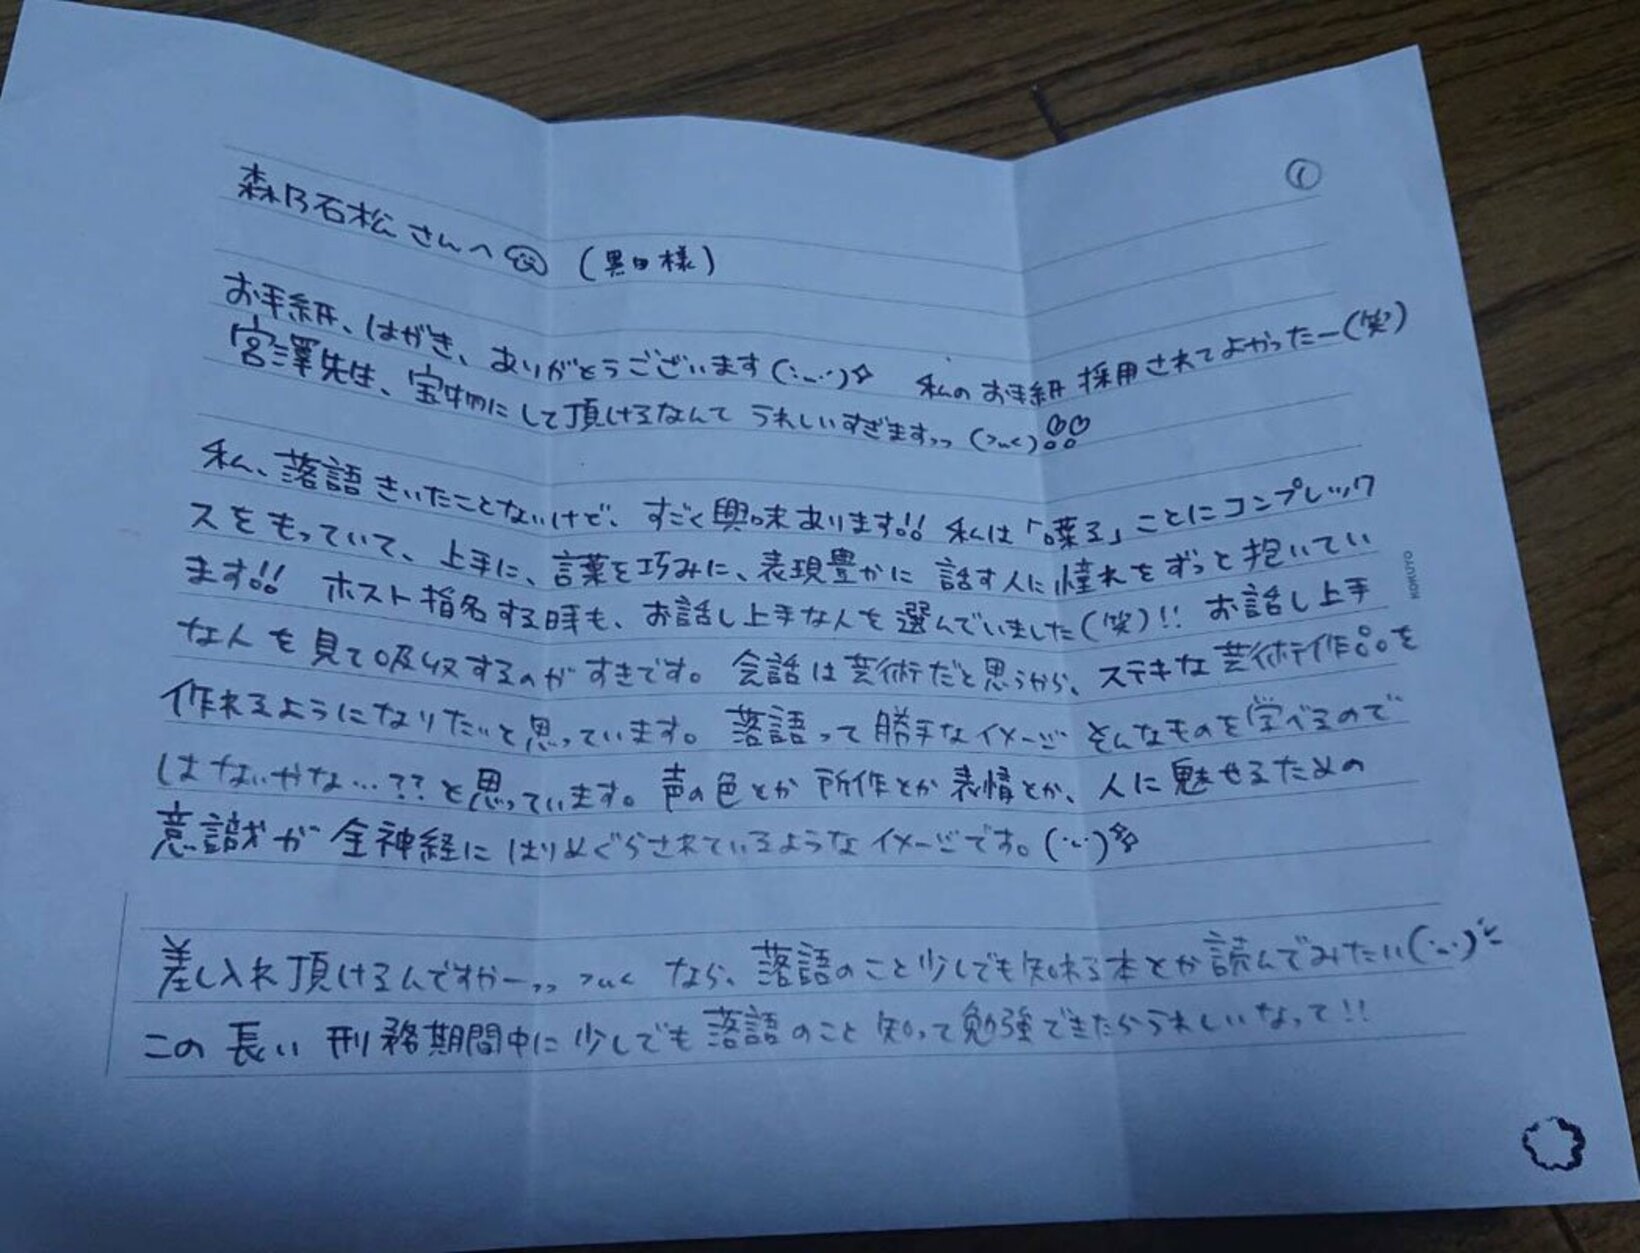 ①
森乃石松さんへ (黒田様)
お手紙、はがき、ありがとうございます(:..:)☆ 私のお手紙採用されてよかったー(笑)
宮澤先生、宝物にして頂けるなんて うれしいすぎます,, (>u<)!!
私、落語きいたことないけど、すごく興味あります!! 私は「喋る」ことにコンプレック
スをもっていて、上手に、言葉を巧みに、表現豊かに 話す人に憧れをずっと抱いてい
ます!! ホスト指名する時も、お話し上手な人を選んでいました(笑)!! お話し上手
な人を見て吸収するのがすきです。会話は芸術だと思うから、ステキな芸術作品を
作れるようになりたいと思っています。落語って勝手なイメージ そんなものを学べるので
はないかな…??と思っています。声の色とか 所作とか表情とか、人に魅せるための
意識が全神経にはりめぐらされているようなイメージです。(:..:)☆
差し入れ頂けるんですかー,, >u< なら、落語のこと少しでも知れる本とか読んでみたい(:..:)
この長い刑務期間中に少しでも落語のこと知って勉強できたらうれしいなって!!
KOKUYO